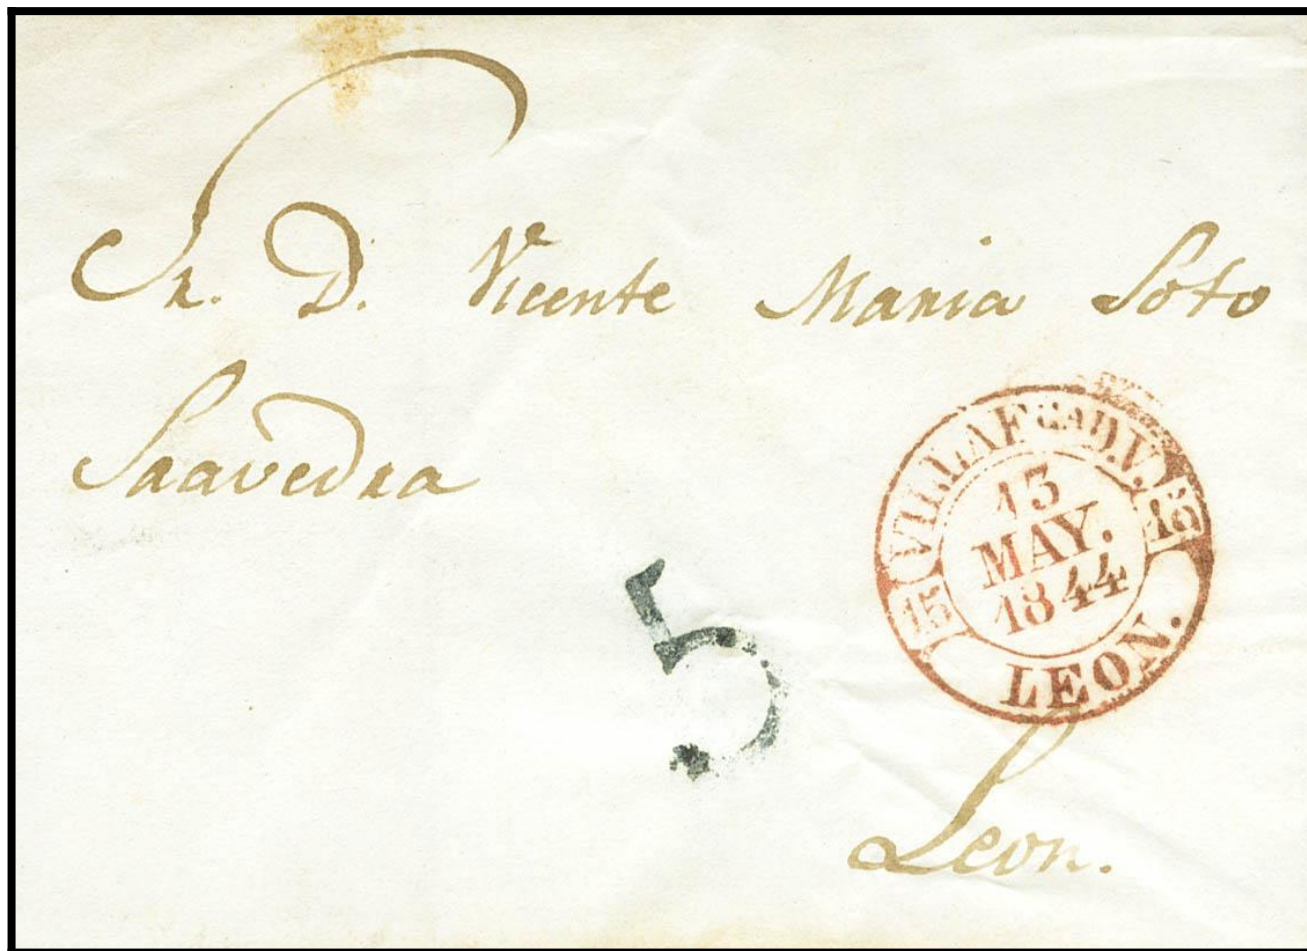 Sr. D. Vicente Maria Soto
Saavedra
VILLAFCA D.V.
15
13
MAY.
1844
15
LEON.
5
Leon.